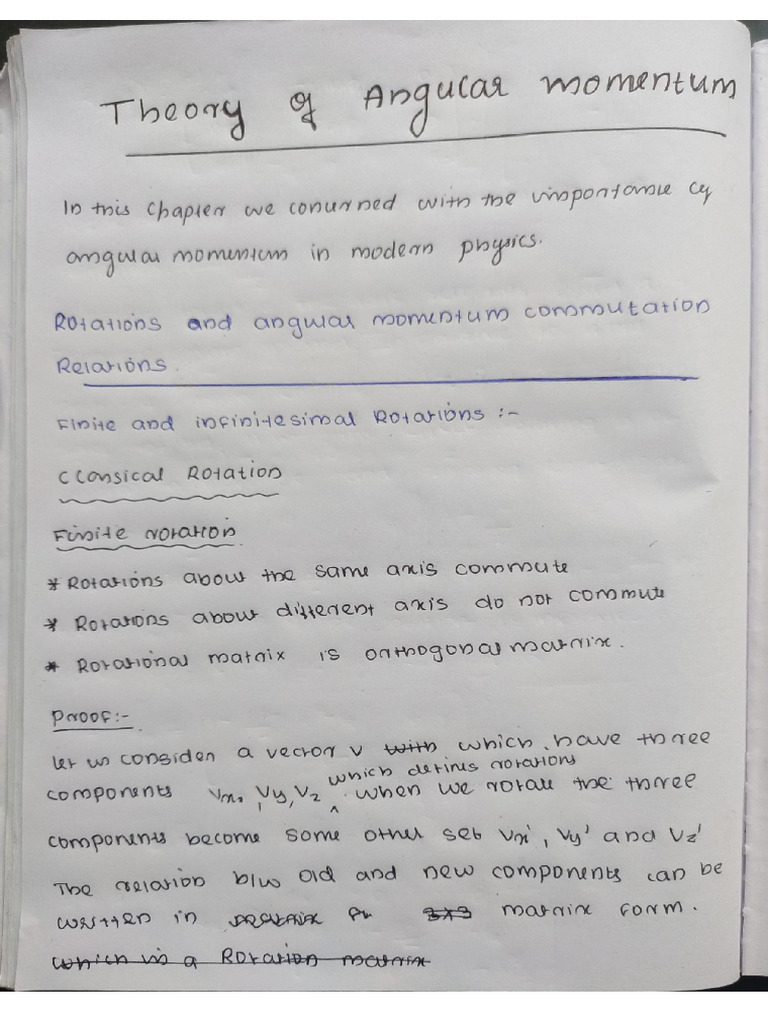 Theory of Angular momentum
In this chapter we concerned with the importance of
angular momentum in modern physics.
Rotations and angular momentum commutation
Relations.
Finite and infinitesimal Rotations :-
Classical Rotation
Finite rotation
* Rotations about the same axis commute
* Rotations about different axis do not commute
* Rotational matrix is orthogonal matrix.
Proof:-
Let us consider a vector V with which have three
which defines rotations
components Vx, Vy, Vz when we rotate the three
components become some other set Vx', Vy' and Vz'
The relation b/w old and new components can be
written in 3x3 matrix form.
which is a Rotation matrix